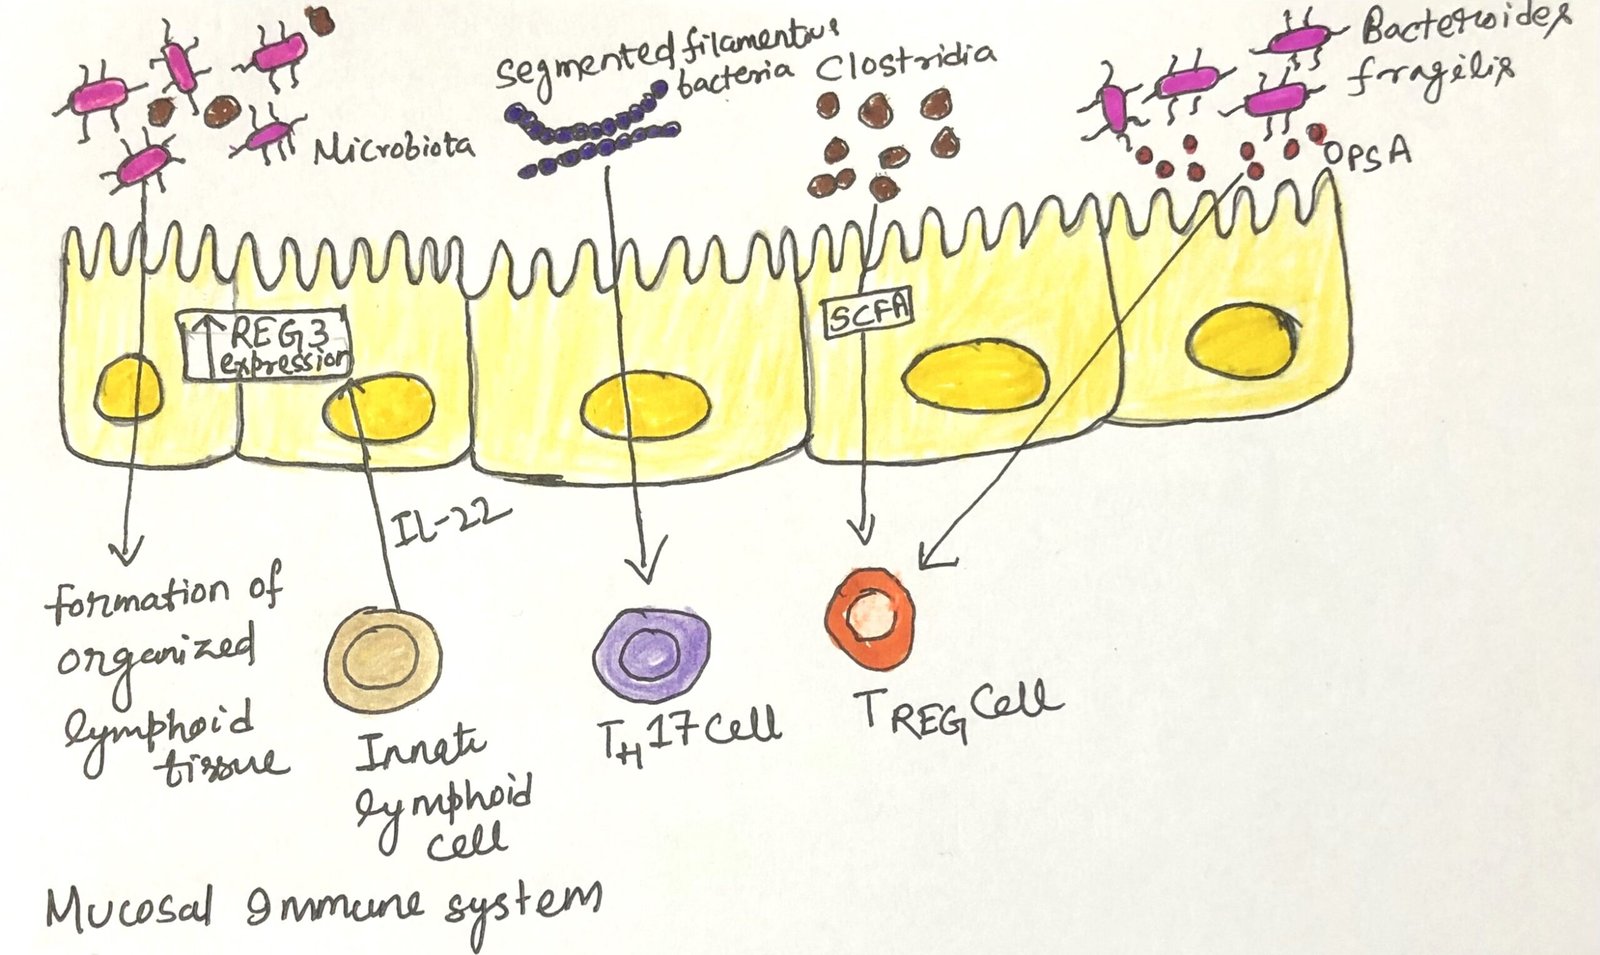 Microbiota
segmented filamentous
bacteria
Clostridia
Bacteroides
fragilis
PSA
↑ REG3
expression
SCFA
IL-22
formation of
organized
lymphoid
tissue
Innate
lymphoid
cell
TH17 cell
TREG Cell
Mucosal Immune system